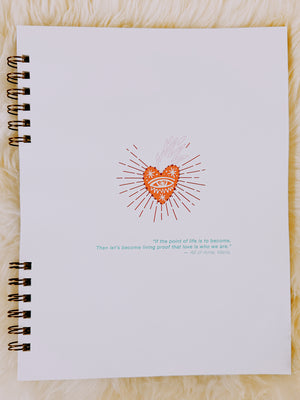 "If the point of life is to become,
Then let's become living proof that love is who we are."